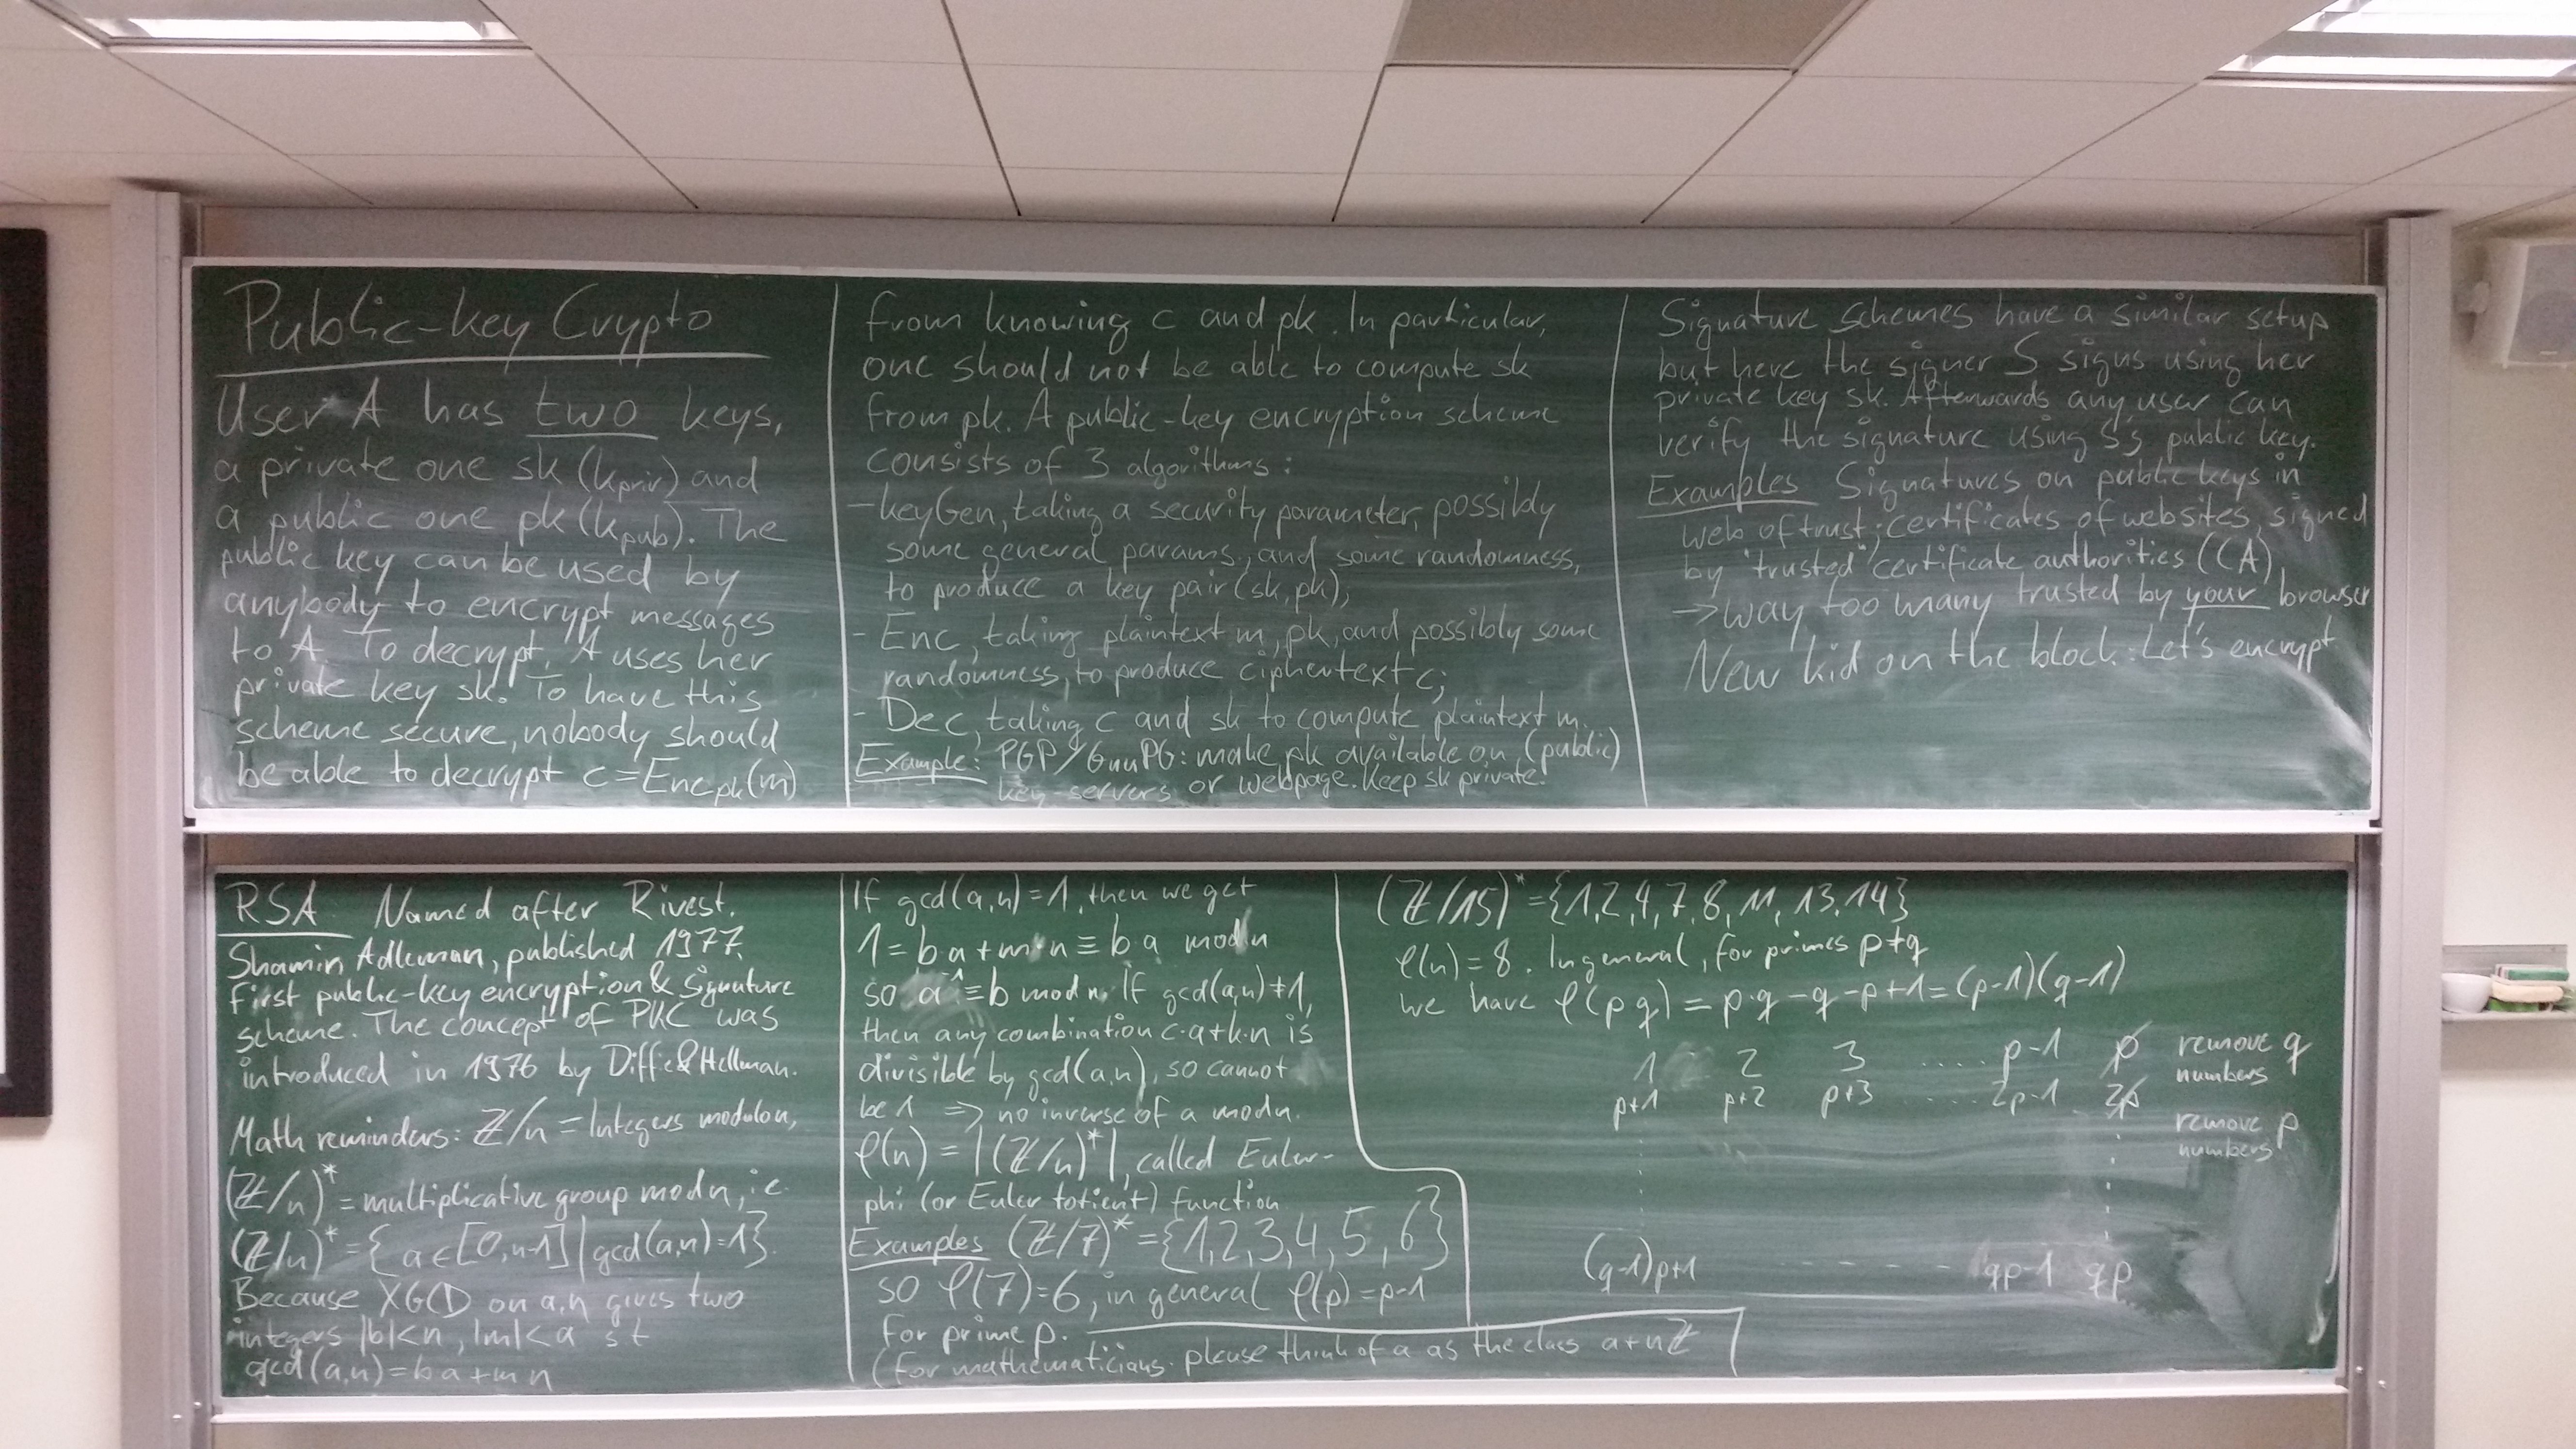 Public-key Crypto
User A has two keys,
a private one sk (kpriv) and
a public one pk (kpub). The
public key can be used by
anybody to encrypt messages
to A. To decrypt, A uses her
private key sk. To have this
scheme secure, nobody should
be able to decrypt c = Encpk(m)
from knowing c and pk. In particular,
one should not be able to compute sk
from pk. A public-key encryption scheme
consists of 3 algorithms:
- keyGen, taking a security parameter, possibly
some general params, and some randomness,
to produce a key pair (sk, pk);
- Enc, taking plaintext m, pk, and possibly some
randomness, to produce ciphertext c;
- Dec, taking c and sk to compute plaintext m.
Example: PGP/GnuPG: make pk available on (public)
key-servers or webpage. Keep sk private.
Signature schemes have a similar setup
but here the signer S signs using her
private key sk. Afterwards any user can
verify the signature using S's public key.
Examples Signatures on public keys in
web of trust; certificates of websites, signed
by "trusted" certificate authorities (CA),
→ way too many trusted by your browser
New kid on the block: Let's encrypt
RSA Named after Rivest,
Shamir, Adleman, published 1977.
First public-key encryption & Signature
scheme. The concept of PKC was
introduced in 1976 by Diffie & Hellman.
Math reminders: ℤ/n = Integers modulo n,
(ℤ/n)* = multiplicative group mod n, i.e.
(ℤ/n)* = {a ∈ [0, n-1] | gcd(a,n)=1}.
Because XGCD on a,n gives two
integers |b|<n, |m|<a s t
gcd(a,n) = b a + m n
If gcd(a,n) = 1, then we get
1 = b·a + m·n ≡ b·a mod n
so a⁻¹ ≡ b mod n. If gcd(a,n) ≠ 1,
then any combination c·a + k·n is
divisible by gcd(a,n), so cannot
be 1 ⇒ no inverse of a mod n.
φ(n) = |(ℤ/n)*|, called Euler-
phi (or Euler totient) function
Examples (ℤ/7)* = {1,2,3,4,5,6}
so φ(7)=6, in general φ(p) = p-1
for prime p.
(For mathematicians: please think of a as the class a+nℤ
(ℤ/15)* = {1,2,4,7,8,11,13,14}
φ(n) = 8. In general, for primes p ≠ q
we have φ(p q) = p·q - q - p + 1 = (p-1)(q-1)
1 2 3 ..... p-1 p remove q
numbers
p+1 p+2 p+3 ..... 2p-1 2p
remove p
numbers
(q-1)p+1 - - - - - qp-1 qp